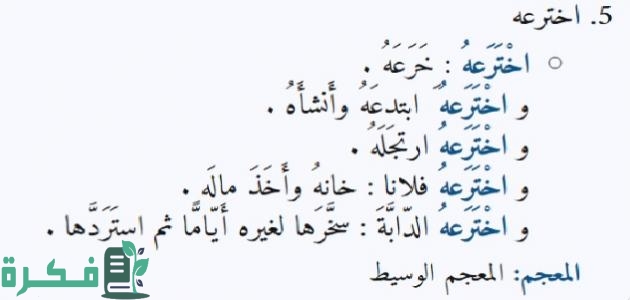 5. اخترعه
○ اخْتَرَعهُ : خَرَعَهُ .
و اخْتَرَعهُ َ ابتدعَهُ وأَنشأَهُ .
و اخْتَرَعهُ ارتجَلَهُ .
و اخْتَرَعهُ فلانا : خانهُ وأَخَذَ مالَه .
و اخْتَرَعهُ الدّابَّةَ : سخَّرَها لغيره أَيّامًا ثم استَرَدَّها .
المعجم: المعجم الوسيط
فكرة